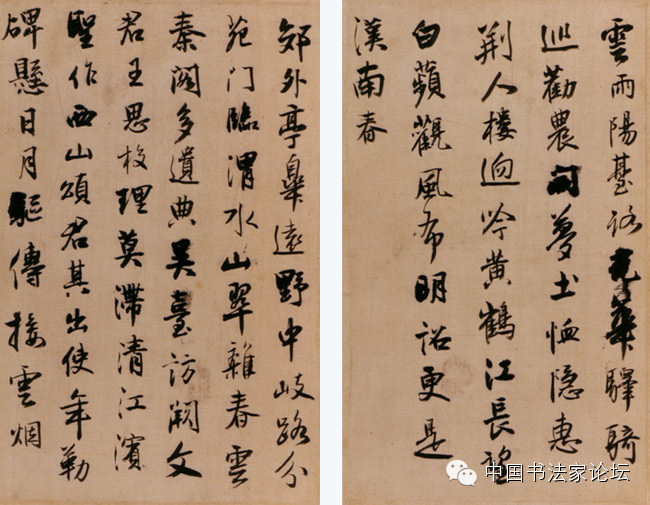 雲雨陽臺路光華驛騎
巡勸農開夢土恤隱惠
荆人樓迥吟黄鶴江長望
白蘋觀風布明詔更是
漢南春
郊外亭臯遠野中岐路分
苑门臨渭水山翠雜春雲
秦閣多遺典吴臺訪闕文
君王思校理莫滞清江濱
聖作西山頌君其出使年勒
碑懸日月驅傳接雲烟
中国书法家论坛